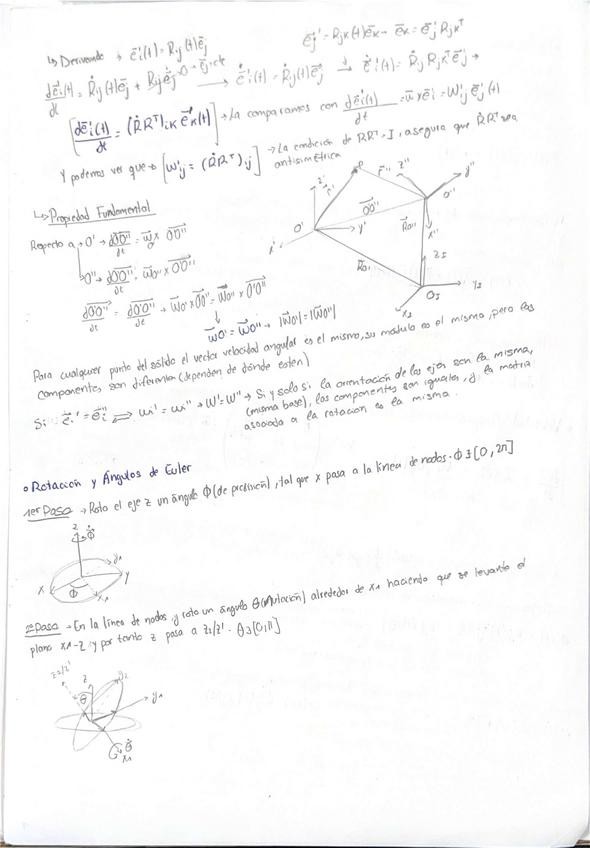 ↳ Derivando → ēi'(t) = Rij(t) ēj
ēj' = Rjk(t) ēk → ēk = ēj' Rjk^T
dēi'(t)/dt = Ṙij(t) ēj + Rij ē̇j → ē̇i'(t) = Ṙij(t) ēj → ē̇i'(t) = Ṙij Rjk^T ēj' →
[dēi'(t)/dt = (ṘR^T)ik ēk'(t)] → La comparamos con dēi'(t)/dt = ω̄ x ēi' = W'ij ēj'(t)
Y podemos ver que → [W'ij = (ṘR^T)ij] → La condición de RR^T = I, asegura que ṘR^T sea
antisimétrica
↳ Propiedad Fundamental
Respecto a → O' → dO'O''/dt = ω̄o' x O'O''
O'' → dO'O''/dt = ω̄o'' x O'O''
dO'O''/dt = dO'O''/dt → ω̄o' x O'O'' = ω̄o'' x O'O''
ω̄o' = ω̄o'' → |ω̄o'| = |ω̄o''|
z' r' P r'' z'' y''
O' O'O'' O''
x' y' Ro'' x''
Ro' zI
OI yI
xI
Para cualquier punto del sólido el vector velocidad angular es el mismo, su módulo es el mismo, pero las
componentes son diferentes (dependen de dónde esten)
Si ēi' = ēi'' ⟺ ωi' = ωi'' → W' = W'' → Si y solo si la orientación de los ejes son la misma,
(misma base), las componentes son iguales, y la matriz
asociada a la rotacion es la misma.
• Rotación y Ángulos de Euler
1er Paso → Roto el eje z un ángulo Φ (de precesión), tal que x pasa a la línea de nodos. Φ ∃ [0, 2π]
z Φ̇
y1
x Φ y
x1
2º Paso → En la línea de nodos y roto un ángulo θ (Nutación) alrededor de x1 haciendo que se levante el
plano x1-z y por tanto z pasa a z2/z'. θ ∃ [0, π]
z2/z' z y2
θ y1
θ̇
x1